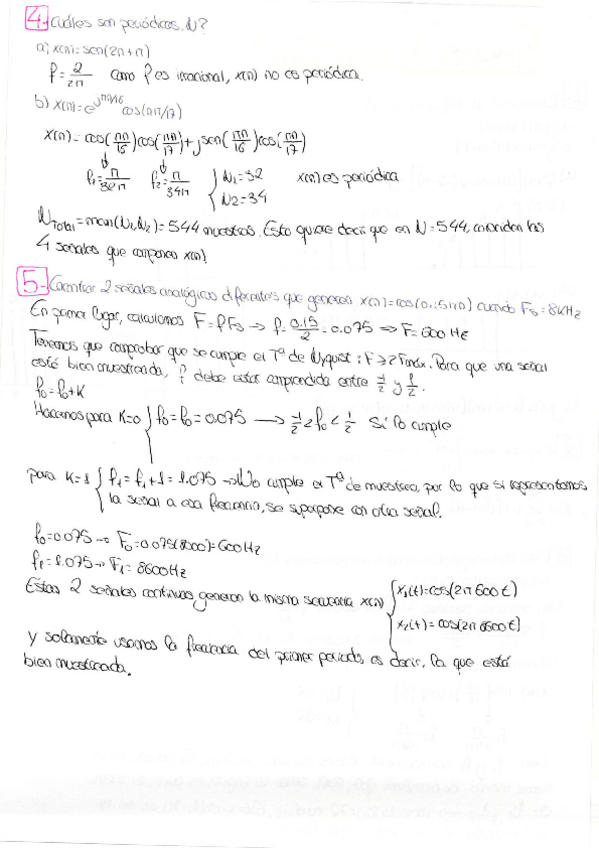 4. Cuáles son periódicas. N?
a) x(n) = sen(2n+π)
f = 2/2π Como f es irracional, x(n) no es periódica.
b) x(n) = e^jπn/16 cos(nπ/17)
x(n) = cos(πn/16) cos(πn/17) + j sen(πn/16) cos(πn/17)
f1 = π/32π f2 = π/34π { N1 = 32 N2 = 34 x(n) es periódica
NTotal = mcm(N1, N2) = 544 muestras. Esto quiere decir que en N = 544, coinciden las
4 señales que componen x(n)
5. Encontrar 2 señales analógicas diferentes que generen x(n) = cos(0.15πn) cuando Fs = 8KHz
En primer lugar, calculamos F = f Fs → f = 0.15/2 = 0.075 → F = 600 Hz
Tenemos que comprobar que se cumple el Tª de Nyquist: F ≥ 2 Fmáx. Para que una señal
esté bien muestreada, f debe estar comprendida entre -1/2 y 1/2.
f0 = f0 + K
Hacemos para K=0 { f0 = f0 = 0.075 → -1/2 ≤ f0 < 1/2 Sí lo cumple
para K=1 { f1 = f1 + 1 = 1.075 → No cumple el Tª de muestreo, por lo que si representamos
la señal a esa frecuencia, se superpone con otra señal.
f0 = 0.075 → F0 = 0.075(8000) = 600 Hz
f1 = 1.075 → F1 = 8600 Hz
Estas 2 señales continuas generan la misma secuencia x(n) { x1(t) = cos(2π 600 t)
x2(t) = cos(2π 8600 t)
Y solamente usamos la frecuencia del primer periodo, es decir, la que está
bien muestreada.